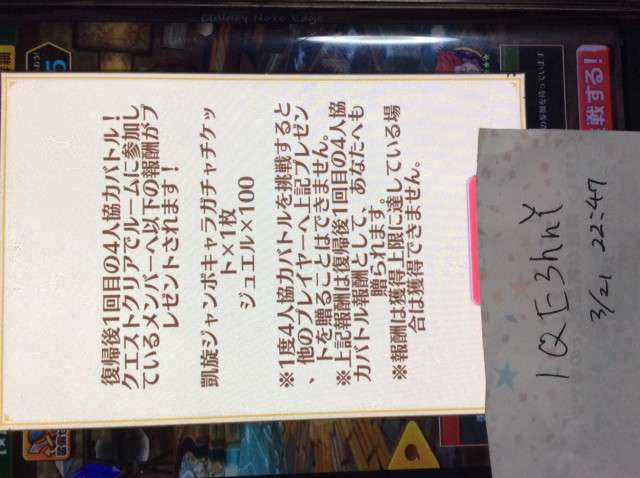 復帰後1回目の4人協力バトル!
クエストクリアでルームに参加し
ているメンバーへ以下の報酬がプ
レゼントされます!
凱旋ジャンボキャラガチャチケッ
ト×1枚
ジュエル×100
※1度4人協力バトルを挑戦すると
、他のプレイヤーへ上記プレゼン
トを贈ることはできません。
※上記報酬は復帰後1回目の4人協
力バトル報酬として、あなたへも
贈られます。
※報酬は獲得上限に達している場
合は獲得できません。
の参加を待っています
戦する!
GALAXY Note Edge
1QE3hnY
3/21 22:47